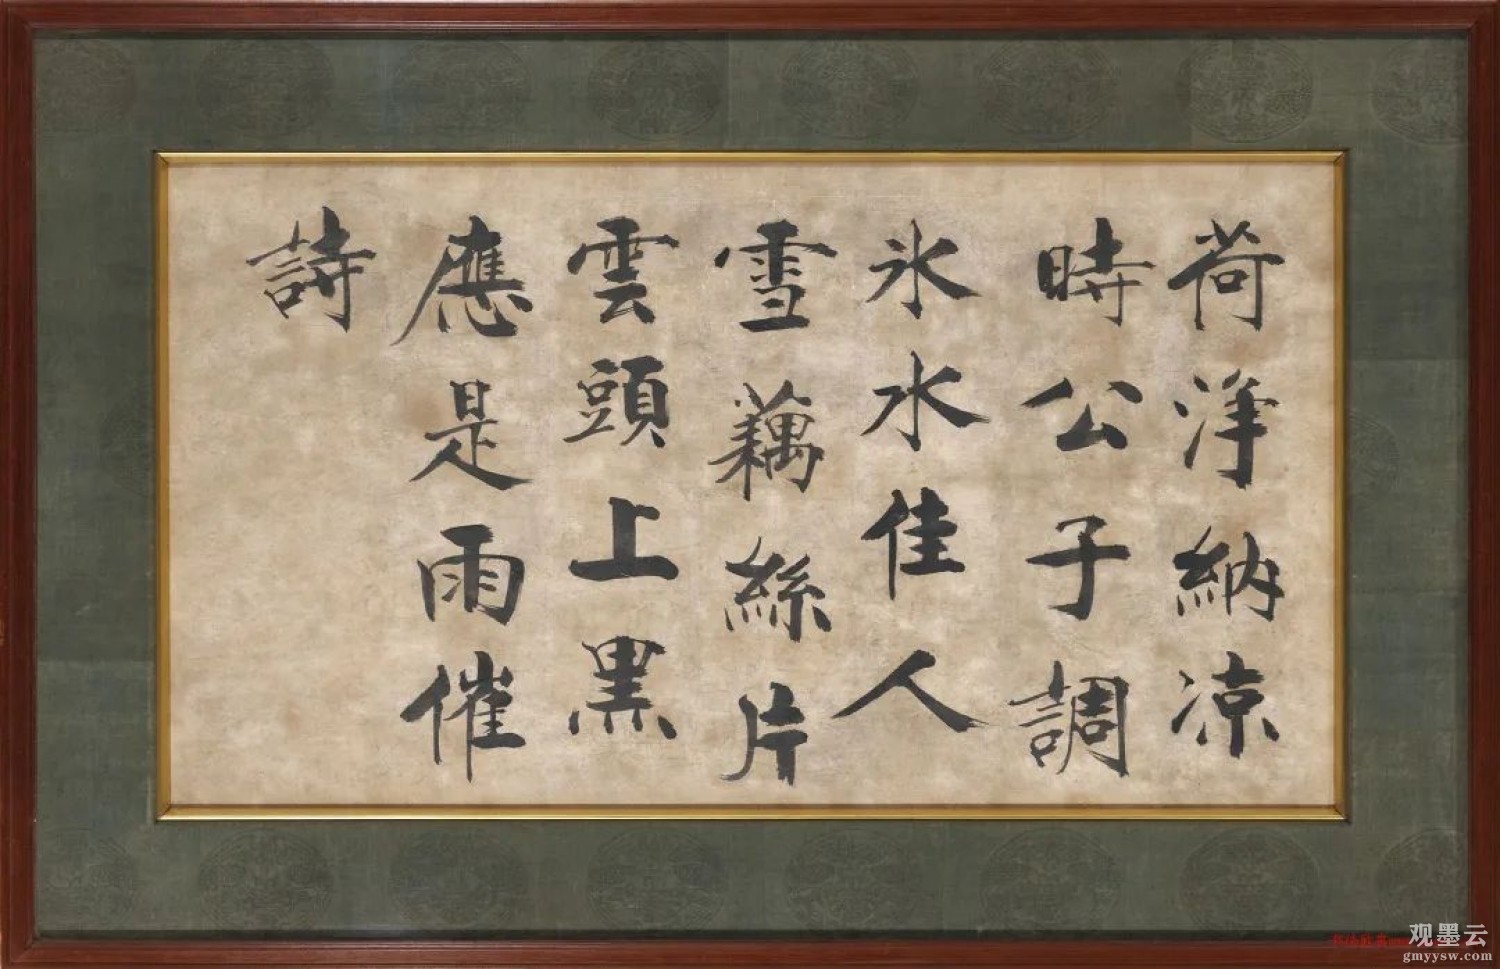 荷淨納凉
時公子調
氷水佳人
雪藕絲片
雲頭上黑
應是雨催
詩
观墨云
gmyysw.com